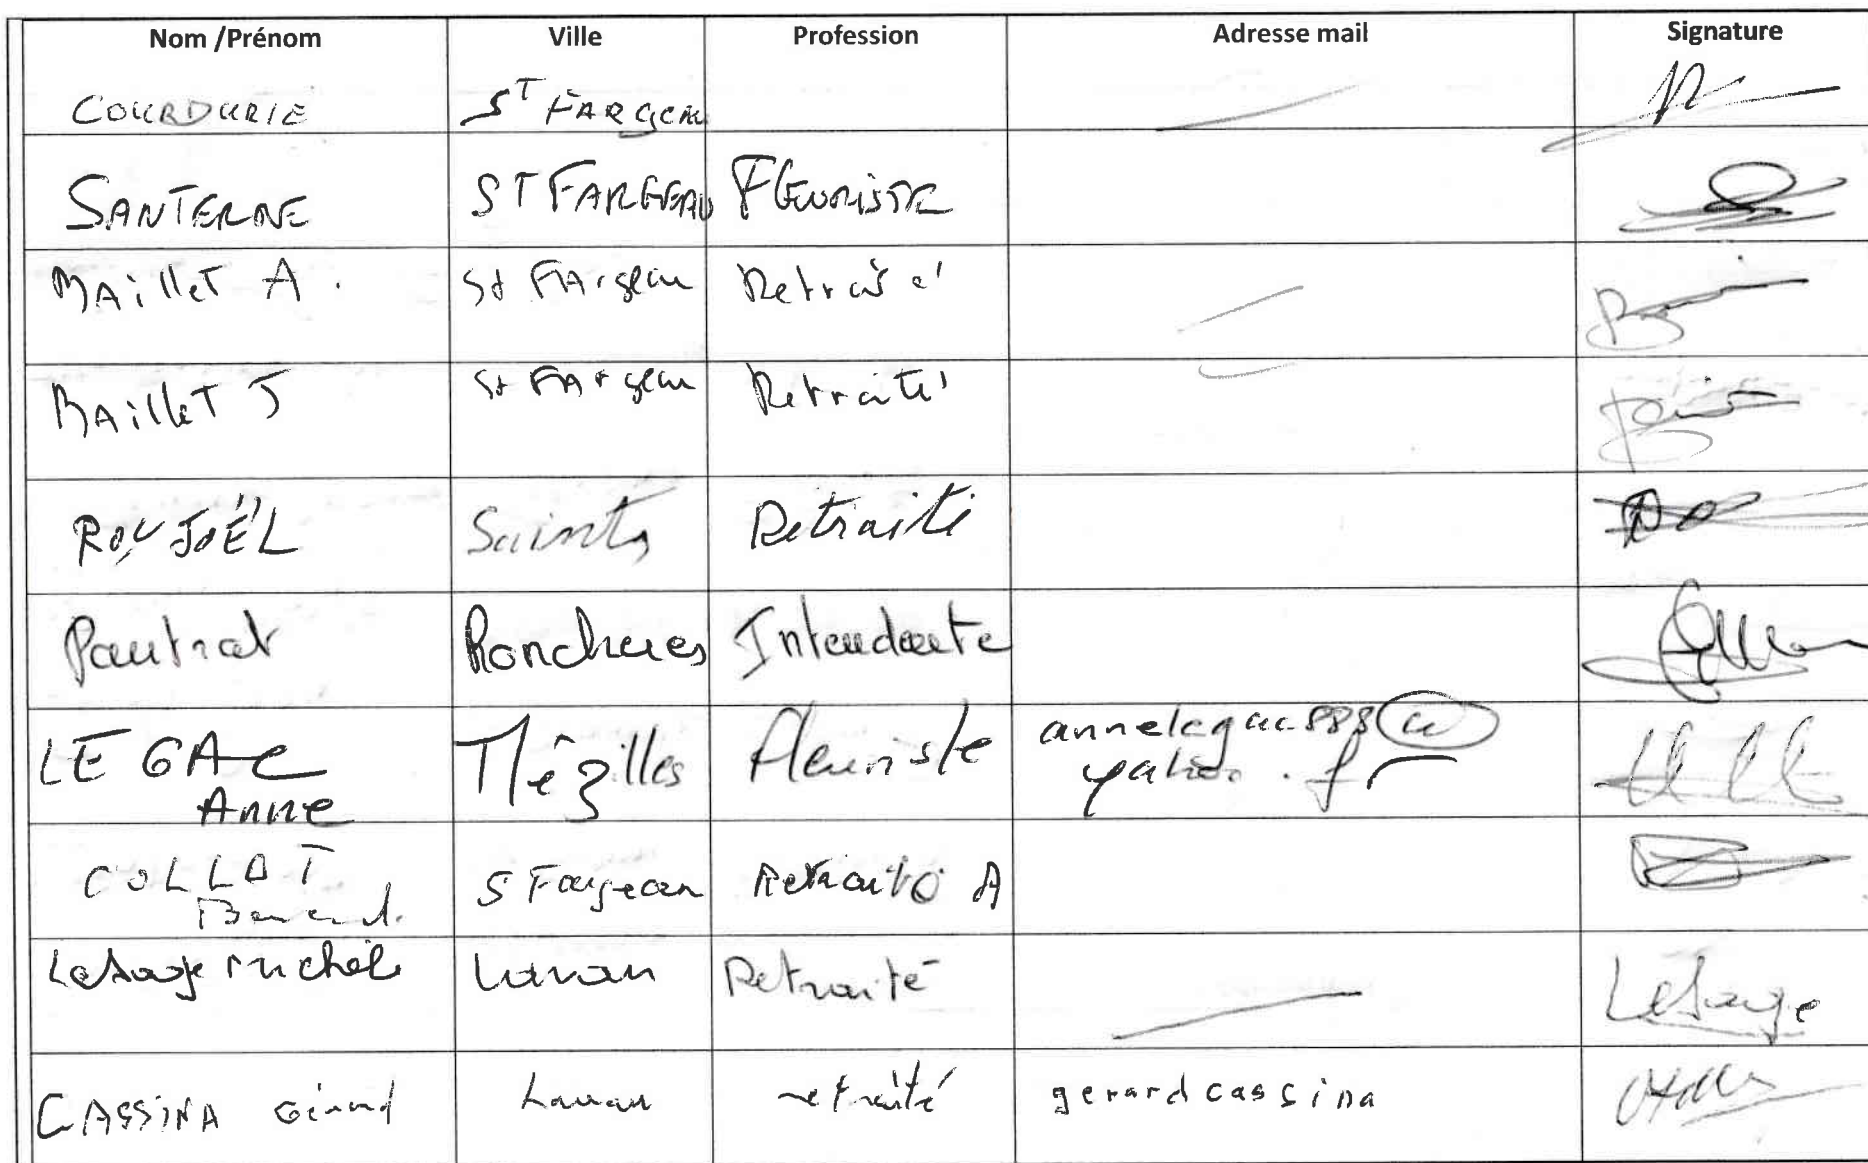 Nom /Prénom Ville Profession Adresse mail Signature
COURDURIE ST FARGEAU
SANTERNE ST FARGEAU FLEURISTE
MAilleT A. St FArgeau Retraité
MAilleT J St FArgeau Retraité
ROY JOËL Saints Retraité
Pautrat Ronchères Intendante
LE GAC Mézilles fleuriste annelegac888@
Anne yahoo.fr
COLLOT S Fargeau Retraité A
Bernard.
Lesage michel Lavau Retraité Lesage
CASSINA Gérard Lavau retraité gerardcassina